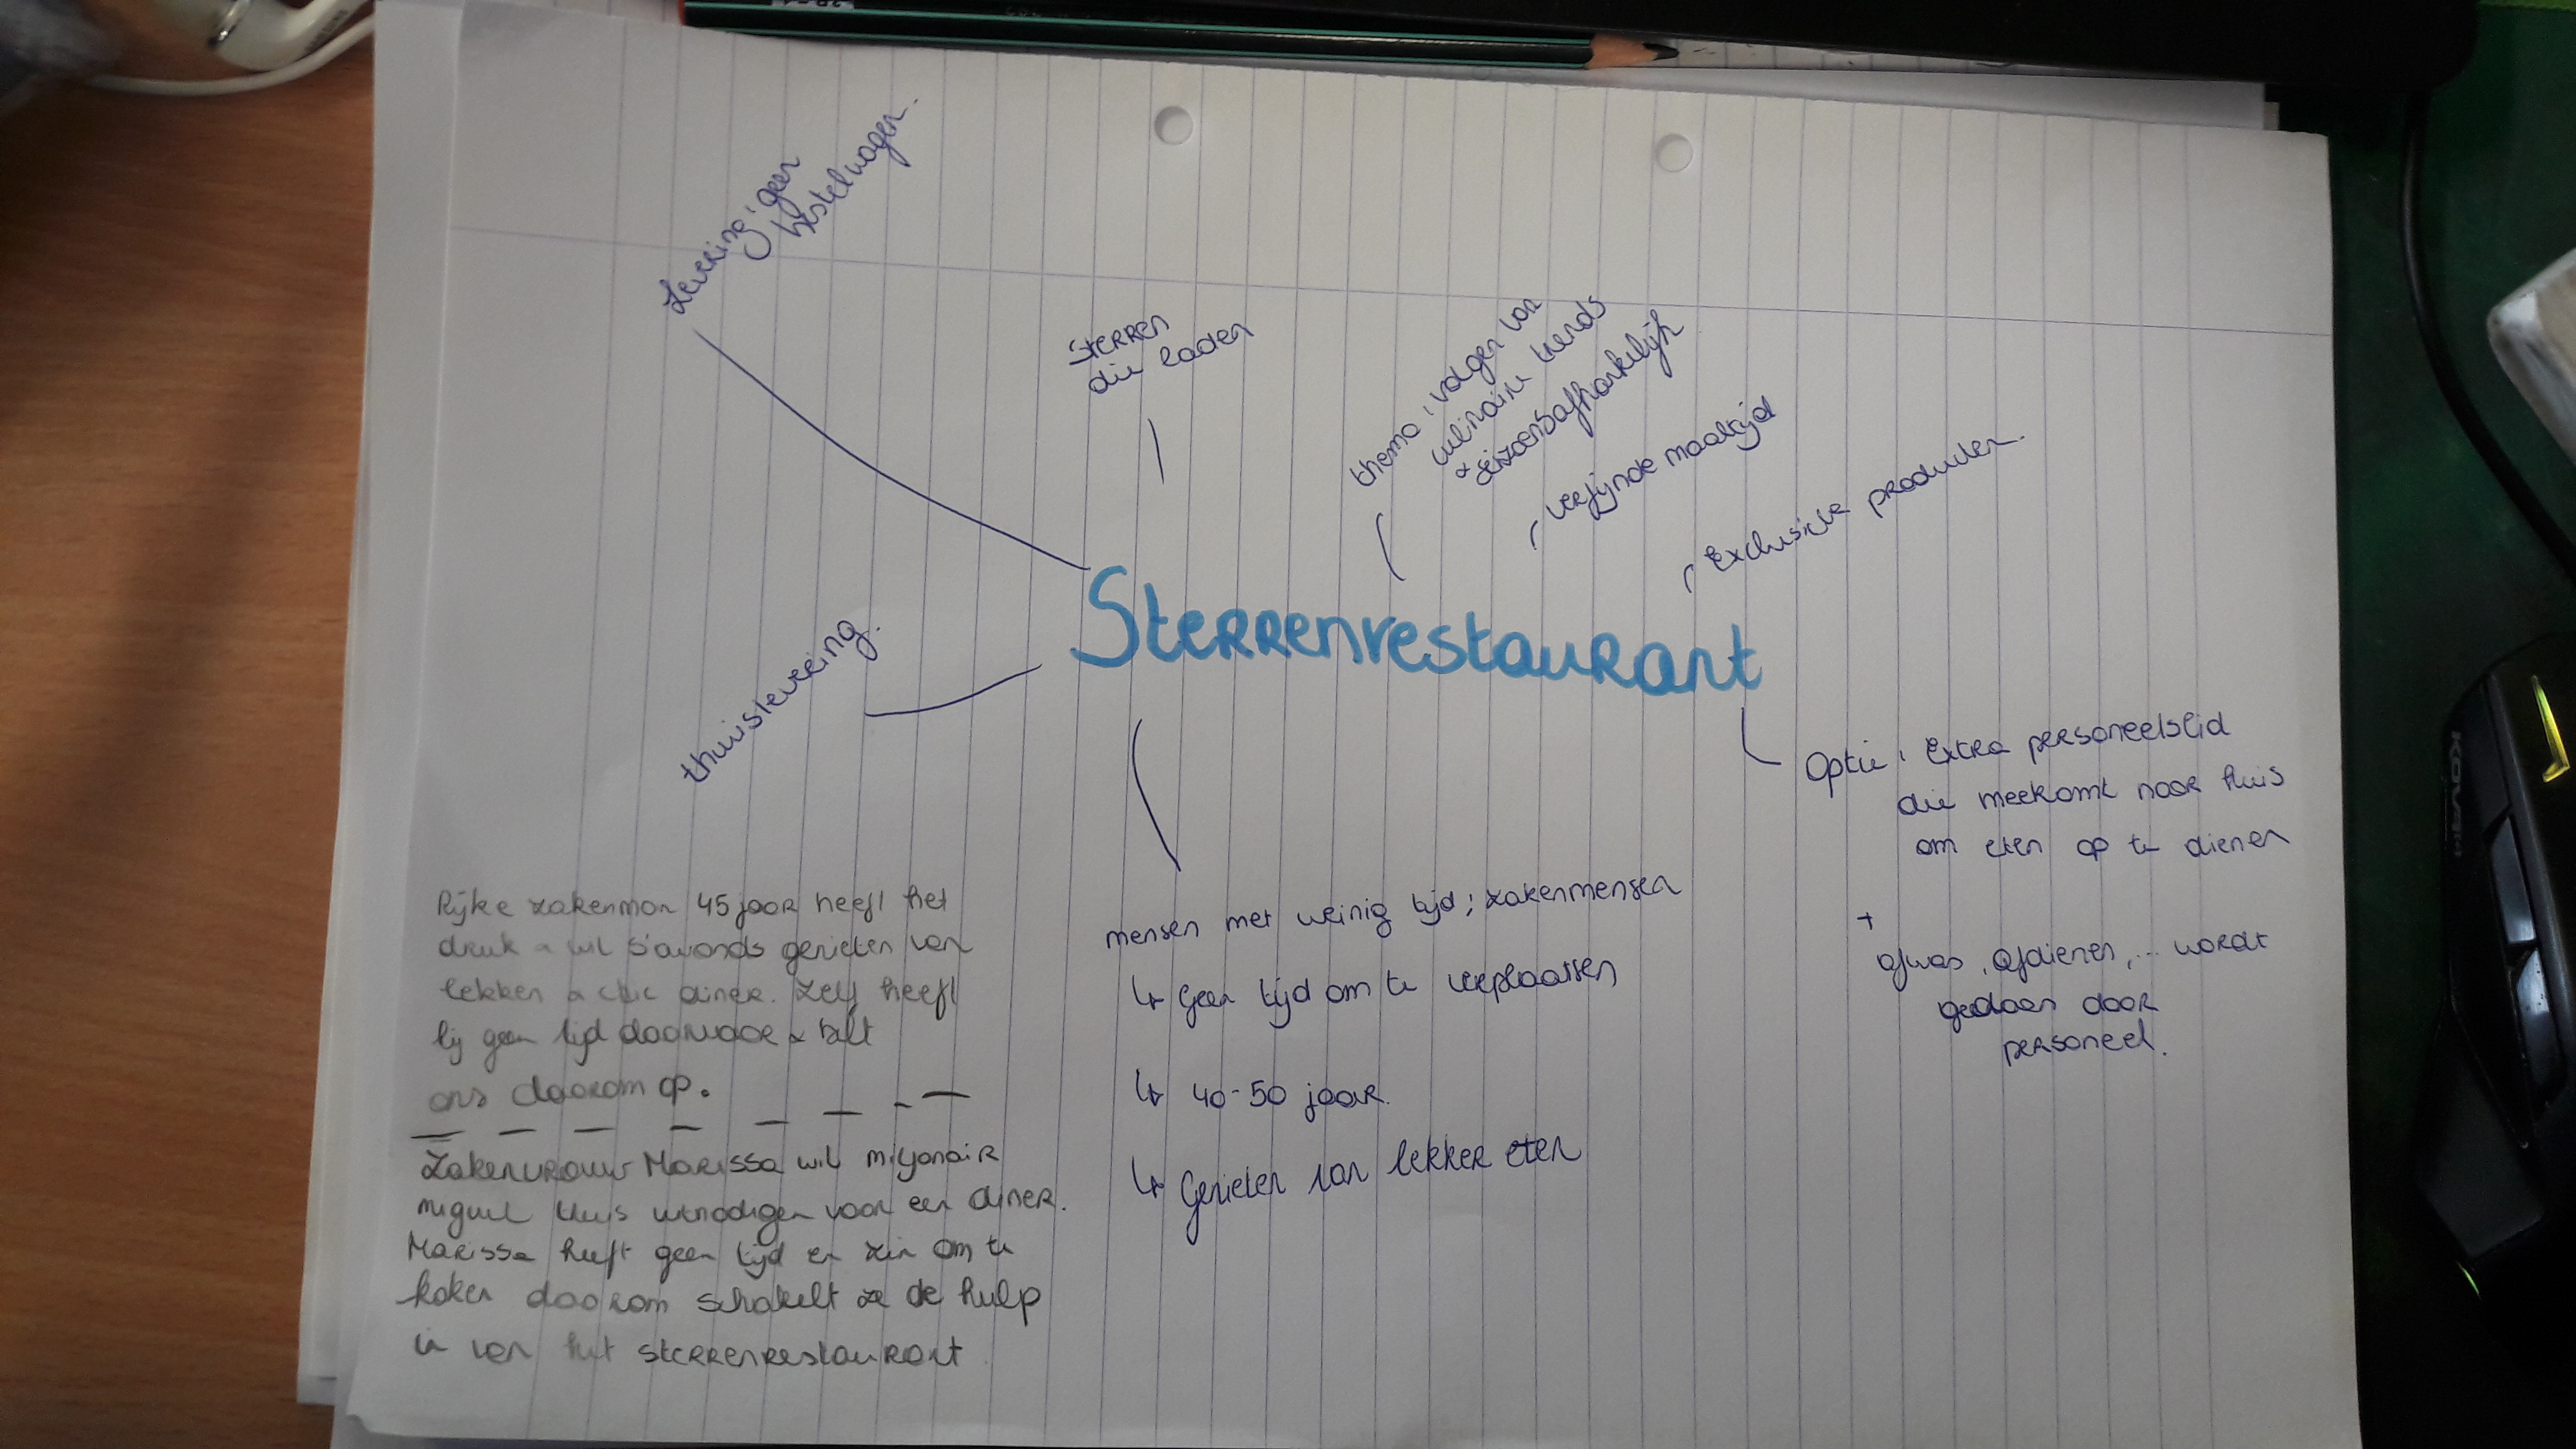 Levering: geen
bestelwagen.
STERREN
die laden
thema: volgen van
culinaire trends
& seizoensafhankelijk
verfijnde maaltijd
Exclusieve producten.
Sterrenrestaurant
thuislevering.
Optie: Extra personeelslid
die meekomt naar huis
om eten op te dienen
+
afwas, afdienen,... wordt
gedaan door
personeel.
mensen met weinig tijd; zakenmensen
↳ Geen tijd om te verplaatsen
↳ 40-50 jaar.
↳ Genieten van lekker eten
Rijke zakenman 45 jaar heeft het
druk & wil s'avonds genieten van
lekker & chic diner. Zelf heeft
hij geen tijd daarvoor & belt
ons daarom op.
Zakenvrouw Marissa wil miljonair
miguel thuis uitnodigen voor een diner.
Marissa heeft geen tijd en zin om te
koken daarom schakelt ze de hulp
in van het sterrenrestaurant
KOVA